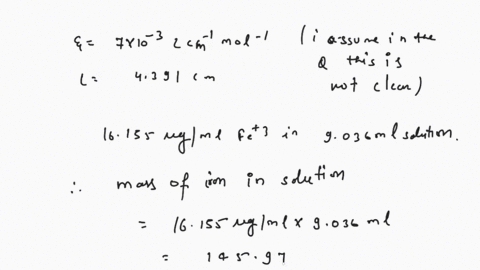 ε = 7×10⁻³ L cm⁻¹ mol⁻¹ (i assume in the
Q this is
not clear)
L = 4.391 cm
16.155 ug/ml Fe⁺³ in 9.036 ml solution.
∴ mass of iron in solution
= 16.155 ug/ml × 9.036 ml
= 145.97